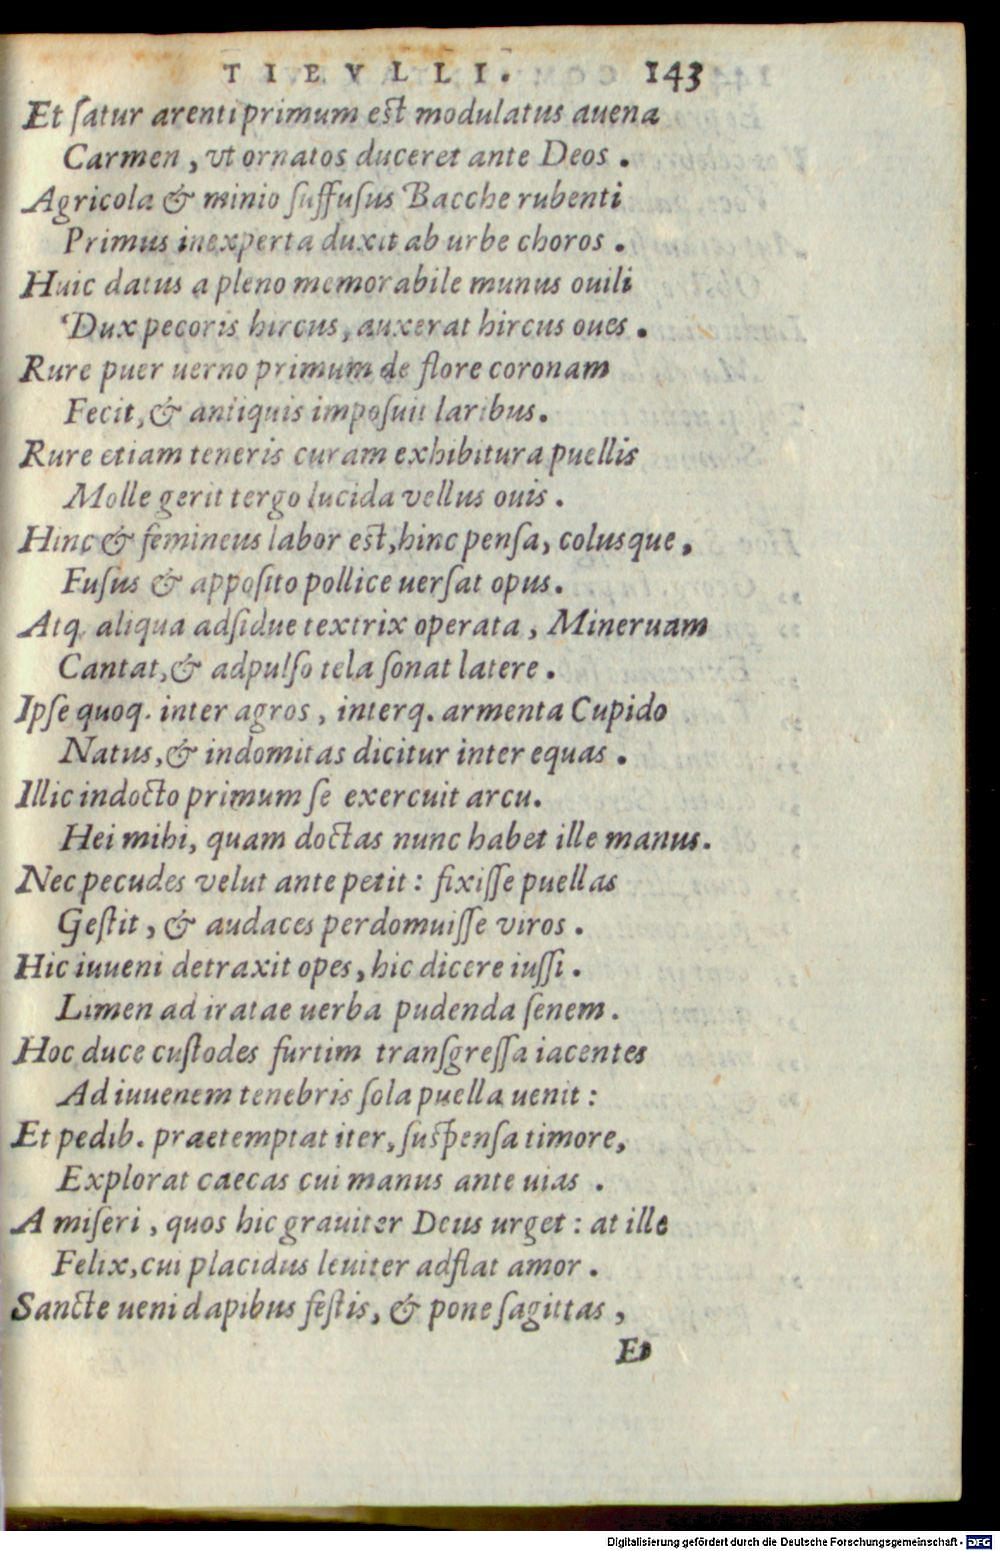 TIBVLLI. 143
Et ſatur arenti primum est modulatus auena
Carmen, vt ornatos duceret ante Deos.
Agricola & minio ſuffuſus Bacche rubenti
Primus inexperta duxit ab urbe choros.
Huic datus a pleno memorabile munus ouili
Dux pecoris hircus, auxerat hircus oues.
Rure puer uerno primum de flore coronam
Fecit, & antiquis impoſuit laribus.
Rure etiam teneris curam exhibitura puellis
Molle gerit tergo lucida vellus ouis.
Hinc & femineus labor est, hinc penſa, colusque,
Fuſus & appoſito pollice uerſat opus.
Atq. aliqua adſidue textrix operata, Mineruam
Cantat, & adpulſo tela ſonat latere.
Ipſe quoq. inter agros, interq. armenta Cupido
Natus, & indomitas dicitur inter equas.
Illic indocto primum ſe exercuit arcu.
Hei mihi, quam doctas nunc habet ille manus.
Nec pecudes velut ante petit: fixiſſe puellas
Geſtit, & audaces perdomuiſſe viros.
Hic iuueni detraxit opes, hic dicere iuſſi.
Limen ad iratae uerba pudenda ſenem.
Hoc duce cuſtodes furtim tranſgreſſa iacentes
Ad iuuenem tenebris ſola puella uenit:
Et pedib. praetemptat iter, ſuſpenſa timore,
Explorat caecas cui manus ante uias.
A miſeri, quos hic grauiter Deus urget: at ille
Felix, cui placidus leuiter adflat amor.
Sancte ueni dapibus feſtis, & pone ſagittas,
Et
Digitalisierung gefördert durch die Deutsche Forschungsgemeinschaft - DFG